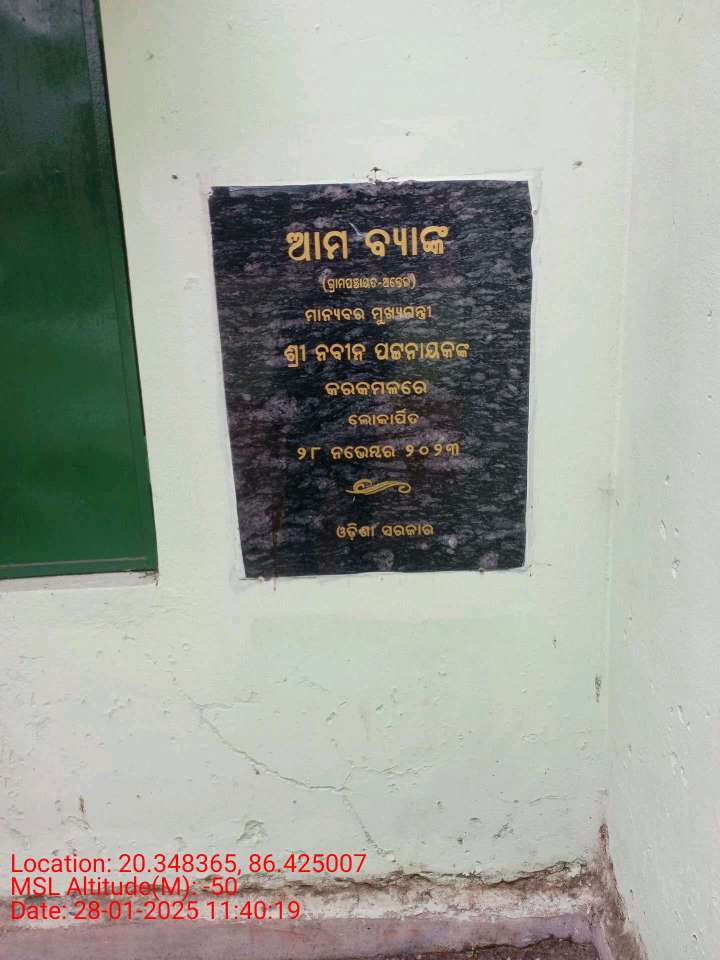 ଆମ ବ୍ୟାଙ୍କ
(ଗ୍ରାମପଞ୍ଚାୟତ-ଅନ୍ତେଇ)
ମାନ୍ୟବର ମୁଖ୍ୟମନ୍ତ୍ରୀ
ଶ୍ରୀ ନବୀନ ପଟ୍ଟନାୟକଙ୍କ
କରକମଳରେ
ଲୋକାର୍ପିତ
୨୮ ନଭେମ୍ବର ୨୦୨୩
ଓଡ଼ିଶା ସରକାର
Location: 20.348365, 86.425007
MSL Altitude(M): -50
Date: 28-01-2025 11:40:19